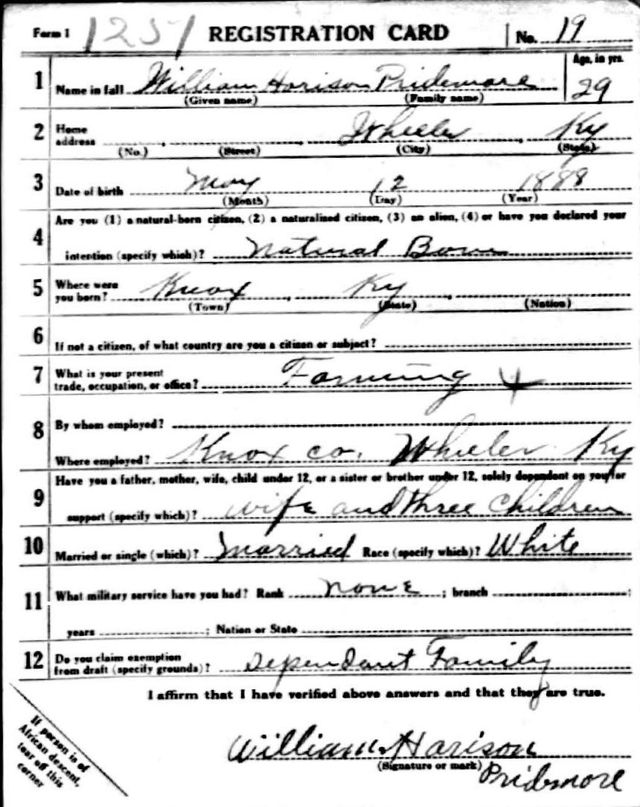 Form 1 1251 REGISTRATION CARD No. 19
1 Name in full William Horison Pridemore Age, in yrs. 29
(Given name) (Family name)
2 Home address Wheeler Ky
(No.) (Street) (City) (State)
3 Date of birth May 12 1888
(Month) (Day) (Year)
4 Are you (1) a natural-born citizen, (2) a naturalized citizen, (3) an alien, (4) or have you declared your
intention (specify which)? Natural Borne
5 Where were you born? Knox Ky
(Town) (State) (Nation)
6 If not a citizen, of what country are you a citizen or subject?
7 What is your present trade, occupation, or office? Farming 4
8 By whom employed?
Where employed? Knox co. Wheeler Ky
9 Have you a father, mother, wife, child under 12, or a sister or brother under 12, solely dependent on you for
support (specify which)? wife and three children
10 Married or single (which)? Married Race (specify which)? White
11 What military service have you had? Rank none ; branch ;
years ; Nation or State
12 Do you claim exemption from draft (specify grounds)? Dependant Family
I affirm that I have verified above answers and that they are true.
William Harison
(Signature or mark) Pridemore
If person is of
African descent,
tear off this
corner